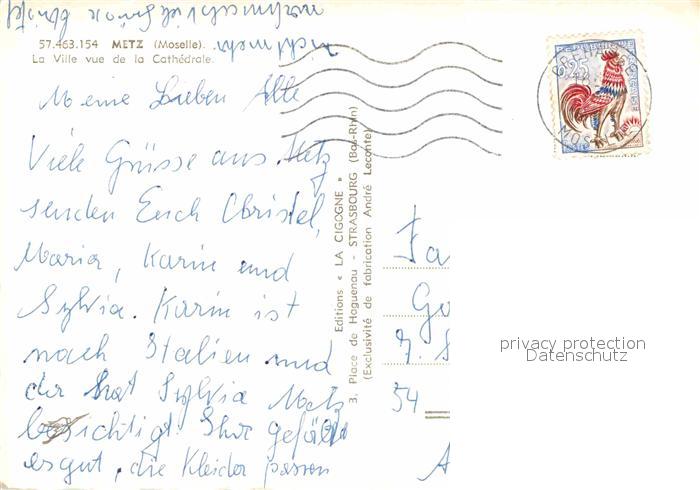 57.463.154 METZ (Moselle).
La Ville vue de la Cathédrale.
nicht mehr
Meine Lieben Alle
Viele Grüsse aus Metz
senden Euch Christel,
Maria, Karin und
Sylvia. Karin ist
nach Italien und
der hat Sylvia Metz
besichtigt. Ihr gefällt
es gut, die Kleider passen
Editions « LA CIGOGNE »
3, Place de Haguenau - STRASBOURG (Bas-Rhin)
(Exclusivité de fabrication André Leconte)
Fa
Ge
7. S
54
A
0,25
MOSELLE
privacy protection
Datenschutz